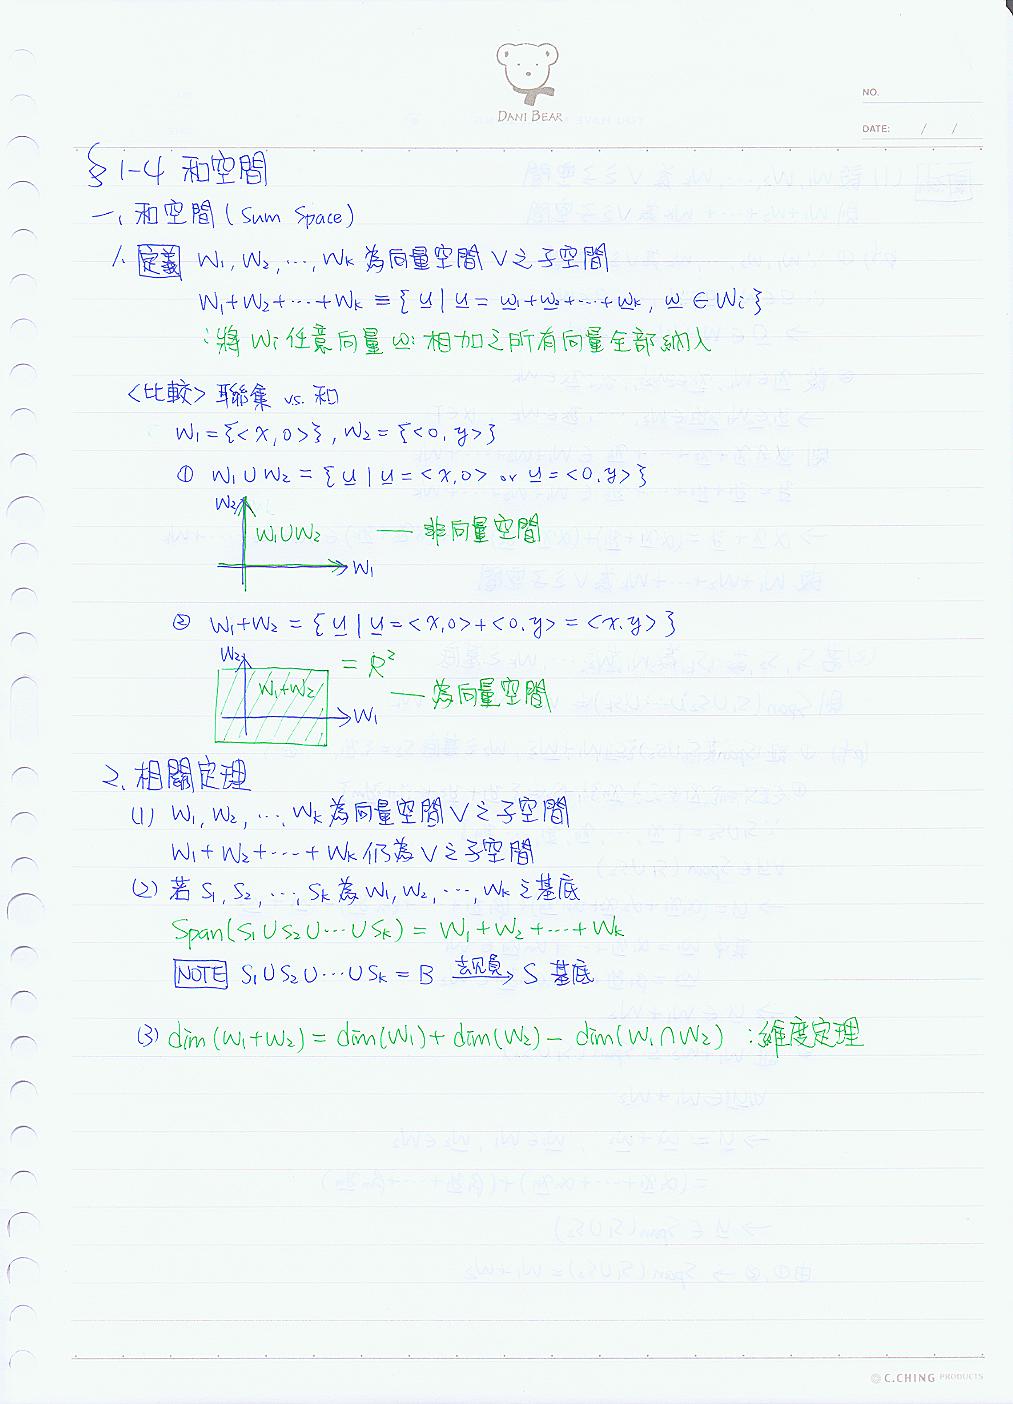 DANI BEAR
NO.
DATE: / /
§ 1-4 和空間
一、和空間 (Sum Space)
1. 定義 W1, W2, ..., Wk 為向量空間 V 之子空間
W1+W2+...+Wk ≡ { u | u = w1+w2+...+wk, w ∈ Wi }
:將 Wi 任意向量 wi 相加之所有向量全部納入
<比較> 聯集 vs. 和
W1 = {<x,0>}, W2 = {<0,y>}
① W1 ∪ W2 = { u | u = <x,0> or u = <0,y> }
W2
W1∪W2 — 非向量空間
W1
② W1+W2 = { u | u = <x,0>+<0,y> = <x,y> }
W2
= R²
W1+W2 — 為向量空間
W1
2. 相關定理
(1) W1, W2, ..., Wk 為向量空間 V 之子空間
W1+W2+...+Wk 仍為 V 之子空間
(2) 若 S1, S2, ..., Sk 為 W1, W2, ..., Wk 之基底
Span(S1∪S2∪...∪Sk) = W1+W2+...+Wk
NOTE S1∪S2∪...∪Sk = B → S 基底
(3) dim(W1+W2) = dim(W1) + dim(W2) - dim(W1∩W2) :維度定理
C.CHING PRODUCTS